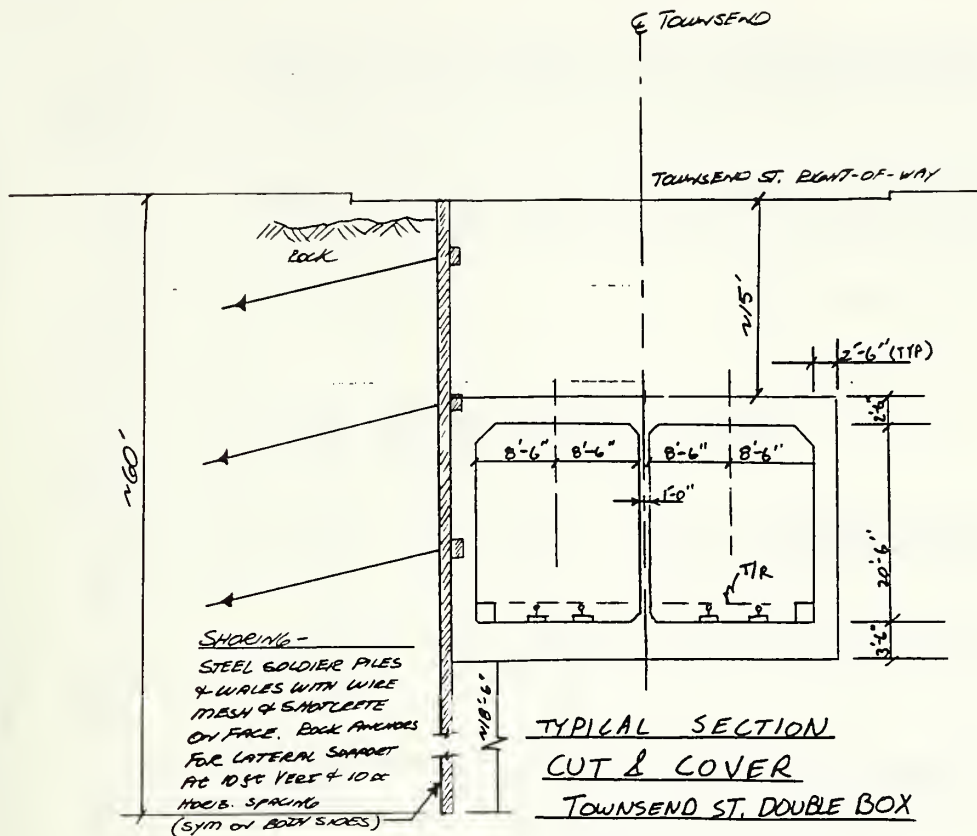 ℄ TOWNSEND
TOWNSEND ST. RIGHT-OF-WAY
ROCK
~15'
2'-6" (TYP)
2'-6"
8'-6" 8'-6" 8'-6" 8'-6"
1'-0"
~60'
20'-6"
T/R
3'-6"
SHORING -
STEEL SOLDIER PILES
& WALES WITH WIRE
MESH & SHOTCRETE
ON FACE. ROCK ANCHORS
FOR LATERAL SUPPORT
AT 10 ft VERT & 10 ft
HORIZ. SPACING
(SYM ON BOTH SIDES)
TYPICAL SECTION
CUT & COVER
TOWNSEND ST. DOUBLE BOX